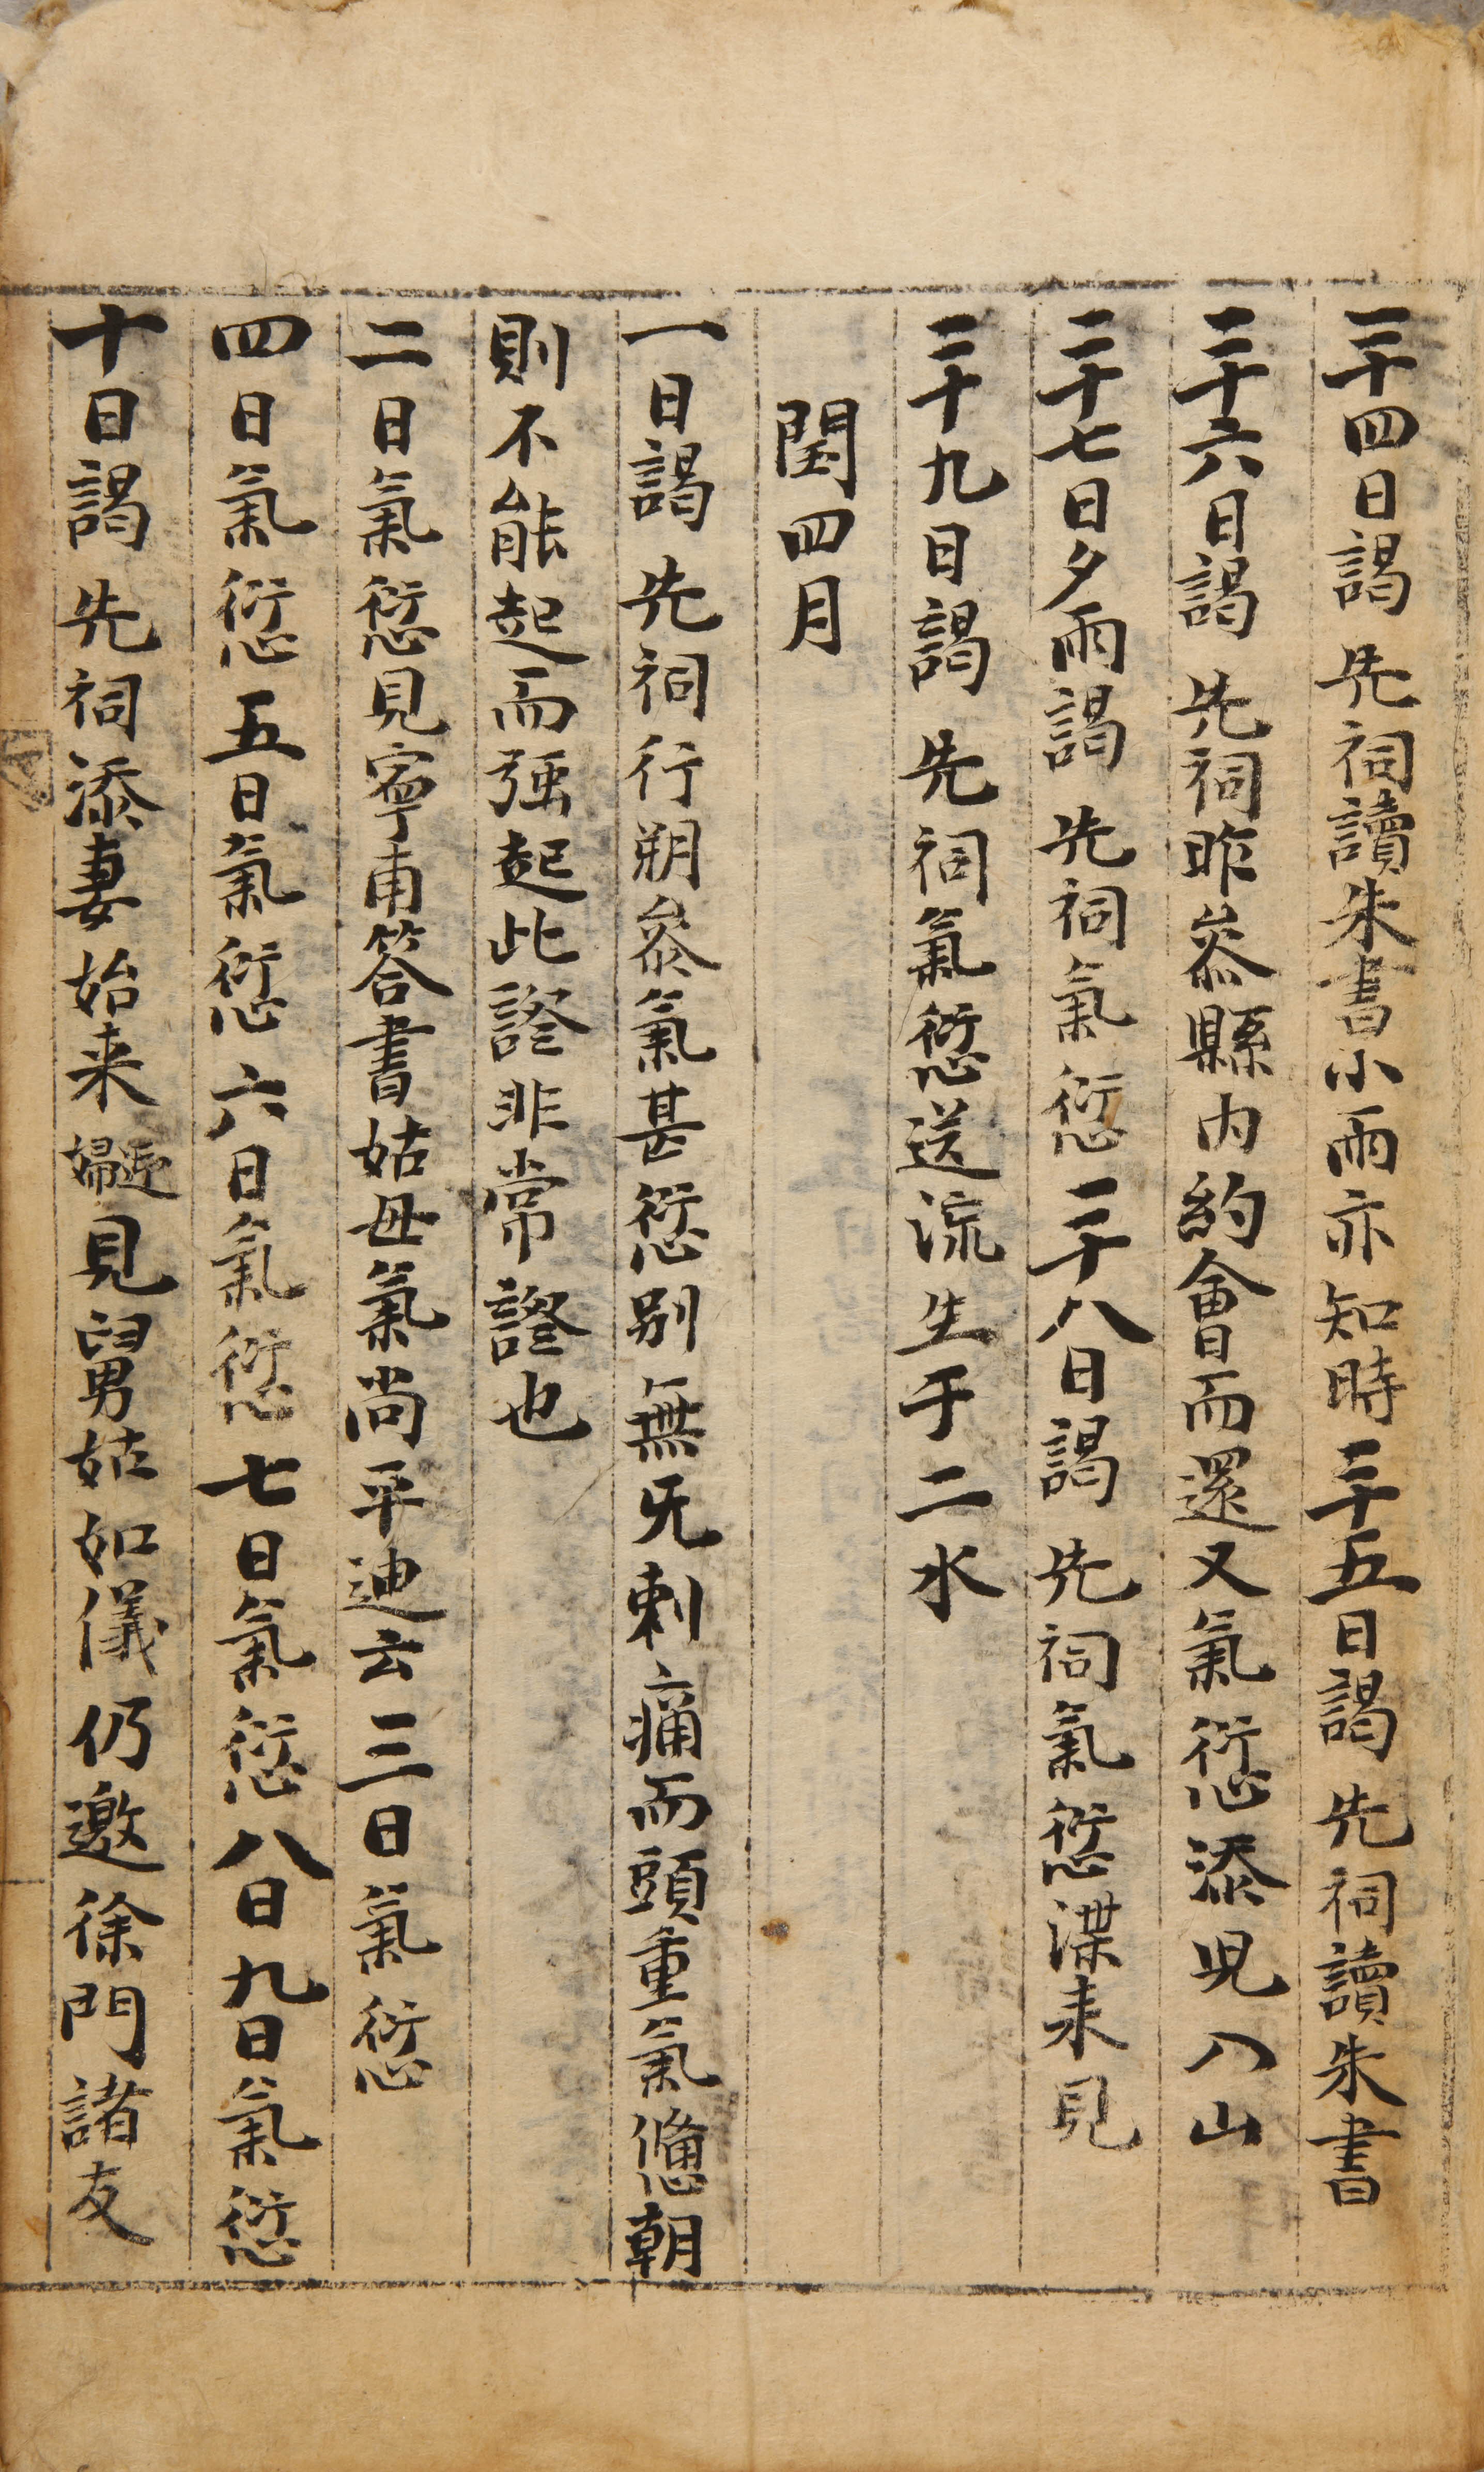 二十四日謁 先祠讀朱書小雨亦知時 二十五日謁 先祠讀朱書
二十六日謁 先祠昨叅縣內約會而還又氣愆添児入山
二十七日夕雨謁 先祠氣愆 二十八日謁 先祠氣愆渫来見
二十九日謁 先祠氣愆送流生于二水
閏四月
一日謁 先祠行朔叅氣甚愆別無旡刺痛而頭重氣憊朝
則不能起而强起此證非常證也
二日氣愆見寗甫答書姑母氣尚平迪云 三日氣愆
四日氣愆 五日氣愆 六日氣愆 七日氣愆 八日九日氣愆
十日謁 先祠添妻始来 見舅姑如儀仍邀徐門諸友